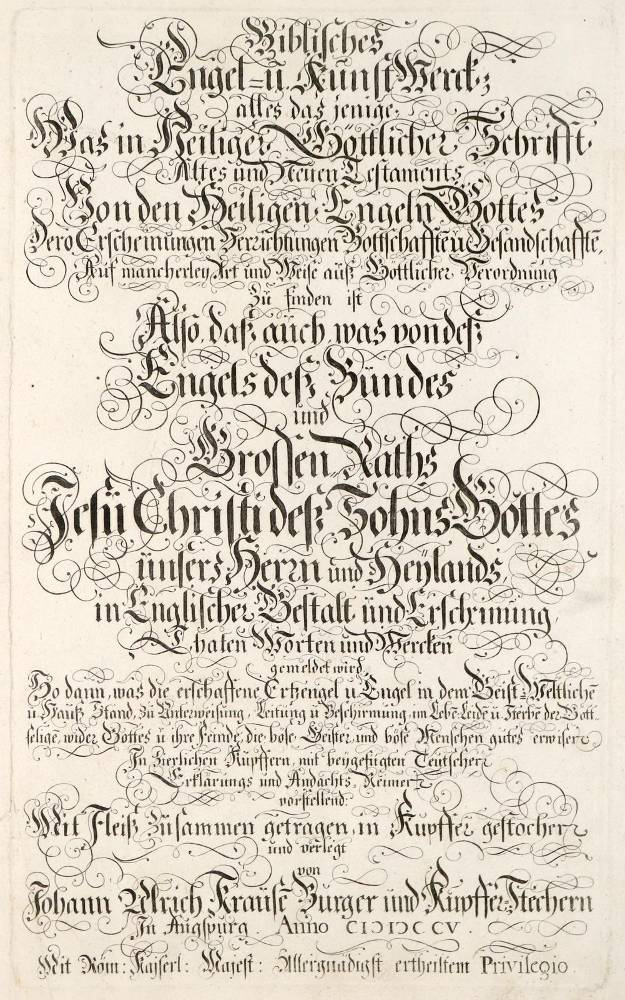 Biblisches
Engel= u. Kunst Werck;
alles das jenige,
Was in Heiliger Göttlicher Schrifft
Altes und Neuen Testaments
Von den Heiligen Engeln Gottes
dero Erscheinungen Verrichtungen Bottschafften Gesandschaffte,
Auf mancherley Art und Weise auß Göttlicher Verordnung
zu finden ist
Also, daß auch was von deß
Engels deß Bundes
und
Grossen Raths
Jesu Christi deß Sohns Gottes
unsers Herrn und Heylands
in Englischer Gestalt und Erscheinung
Thaten Worten und Wercken
gemeldet wird
So dann, was die erschaffene Ertzengel u. Engel in dem Geist= Weltliche
u Hauß Stand, zu Unterweisung, Leitung u Beschirmung, im Lebe Leide u Sterbe der Gott
selige, wider Gottes u ihre Feinde, die böse Geister und böse Menschen gutes erwisen,
In Zierlichen Kupffern, mit beygefügten Teutschen
Erklärungs und Andachts Reimen
vorstellend.
Mit Fleiß zusammen getragen, in Kupffer gestochen
und verlegt
von
Johann Ulrich Krausen Burger und Kupffer Stechern
In Augspurg. Anno CIƆ IƆCC V.
Mit Röm: Kaiserl: Majest: Allergnädigst ertheiltem Privilegio.